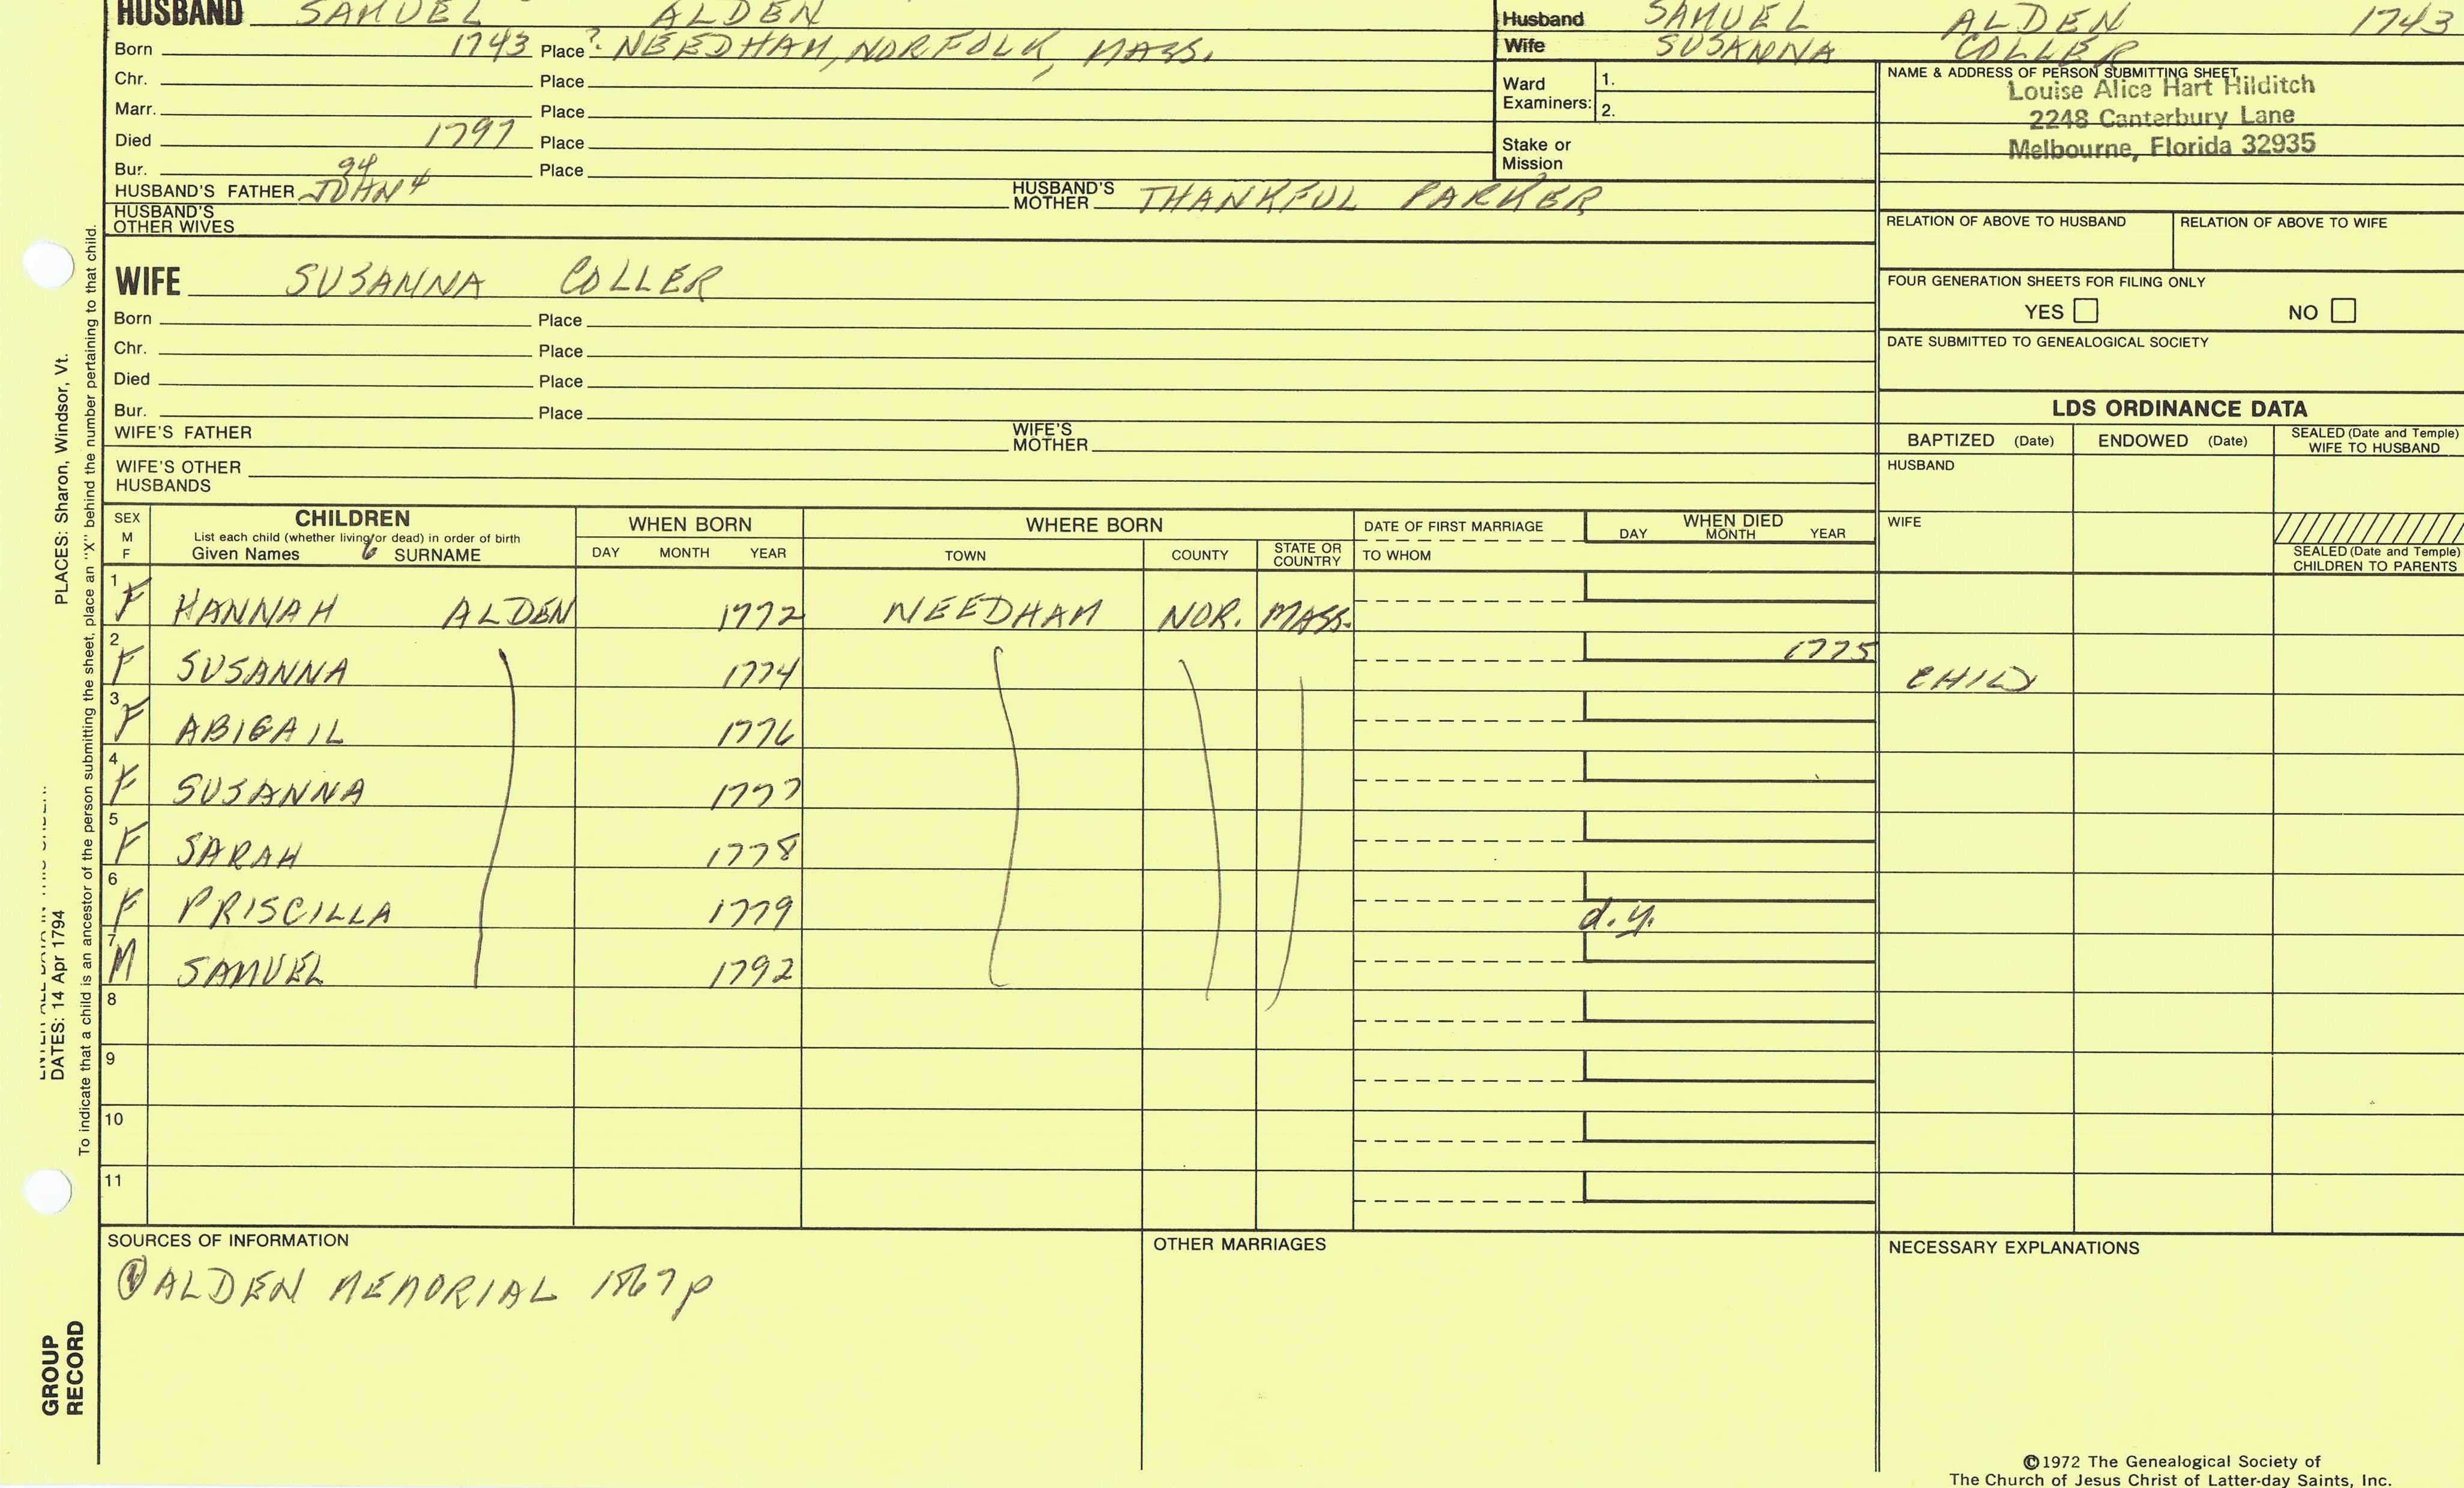 HUSBAND SAMUEL ALDEN
Born 1743 Place ? NEEDHAM, NORFOLK, MASS.
Chr. Place
Marr. Place
Died 1797 Place
Bur. Place
94
HUSBAND'S FATHER JOHN 4 HUSBAND'S MOTHER THANKFUL PARKER
HUSBAND'S OTHER WIVES
Husband SAMUEL ALDEN 1743
Wife SUSANNA COLLER
Ward Examiners: 1.
2.
Stake or Mission
NAME & ADDRESS OF PERSON SUBMITTING SHEET
Louise Alice Hart Hilditch
2248 Canterbury Lane
Melbourne, Florida 32935
RELATION OF ABOVE TO HUSBAND RELATION OF ABOVE TO WIFE
FOUR GENERATION SHEETS FOR FILING ONLY
YES NO
DATE SUBMITTED TO GENEALOGICAL SOCIETY
WIFE SUSANNA COLLER
Born Place
Chr. Place
Died Place
Bur. Place
WIFE'S FATHER WIFE'S MOTHER
WIFE'S OTHER HUSBANDS
LDS ORDINANCE DATA
BAPTIZED (Date) ENDOWED (Date) SEALED (Date and Temple) WIFE TO HUSBAND
HUSBAND
WIFE
SEALED (Date and Temple) CHILDREN TO PARENTS
SEX M F
CHILDREN
List each child (whether living or dead) in order of birth
Given Names SURNAME
WHEN BORN
DAY MONTH YEAR
WHERE BORN
TOWN COUNTY STATE OR COUNTRY
DATE OF FIRST MARRIAGE
TO WHOM
WHEN DIED
DAY MONTH YEAR
1 F HANNAH ALDEN 1772 NEEDHAM NOR. MASS.
2 F SUSANNA 1774 1775 CHILD
3 F ABIGAIL 1776
4 F SUSANNA 1777
5 F SARAH 1778
6 F PRISCILLA 1779 d.y.
7 M SAMUEL 1792
8
9
10
11
SOURCES OF INFORMATION
① ALDEN MEMORIAL 1867 p
OTHER MARRIAGES
NECESSARY EXPLANATIONS
©1972 The Genealogical Society of
The Church of Jesus Christ of Latter-day Saints, Inc.
DATES: 14 Apr 1794 PLACES: Sharon, Windsor, Vt.
To indicate that a child is an ancestor of the person submitting the sheet, place an "X" behind the number pertaining to that child.
GROUP
RECORD